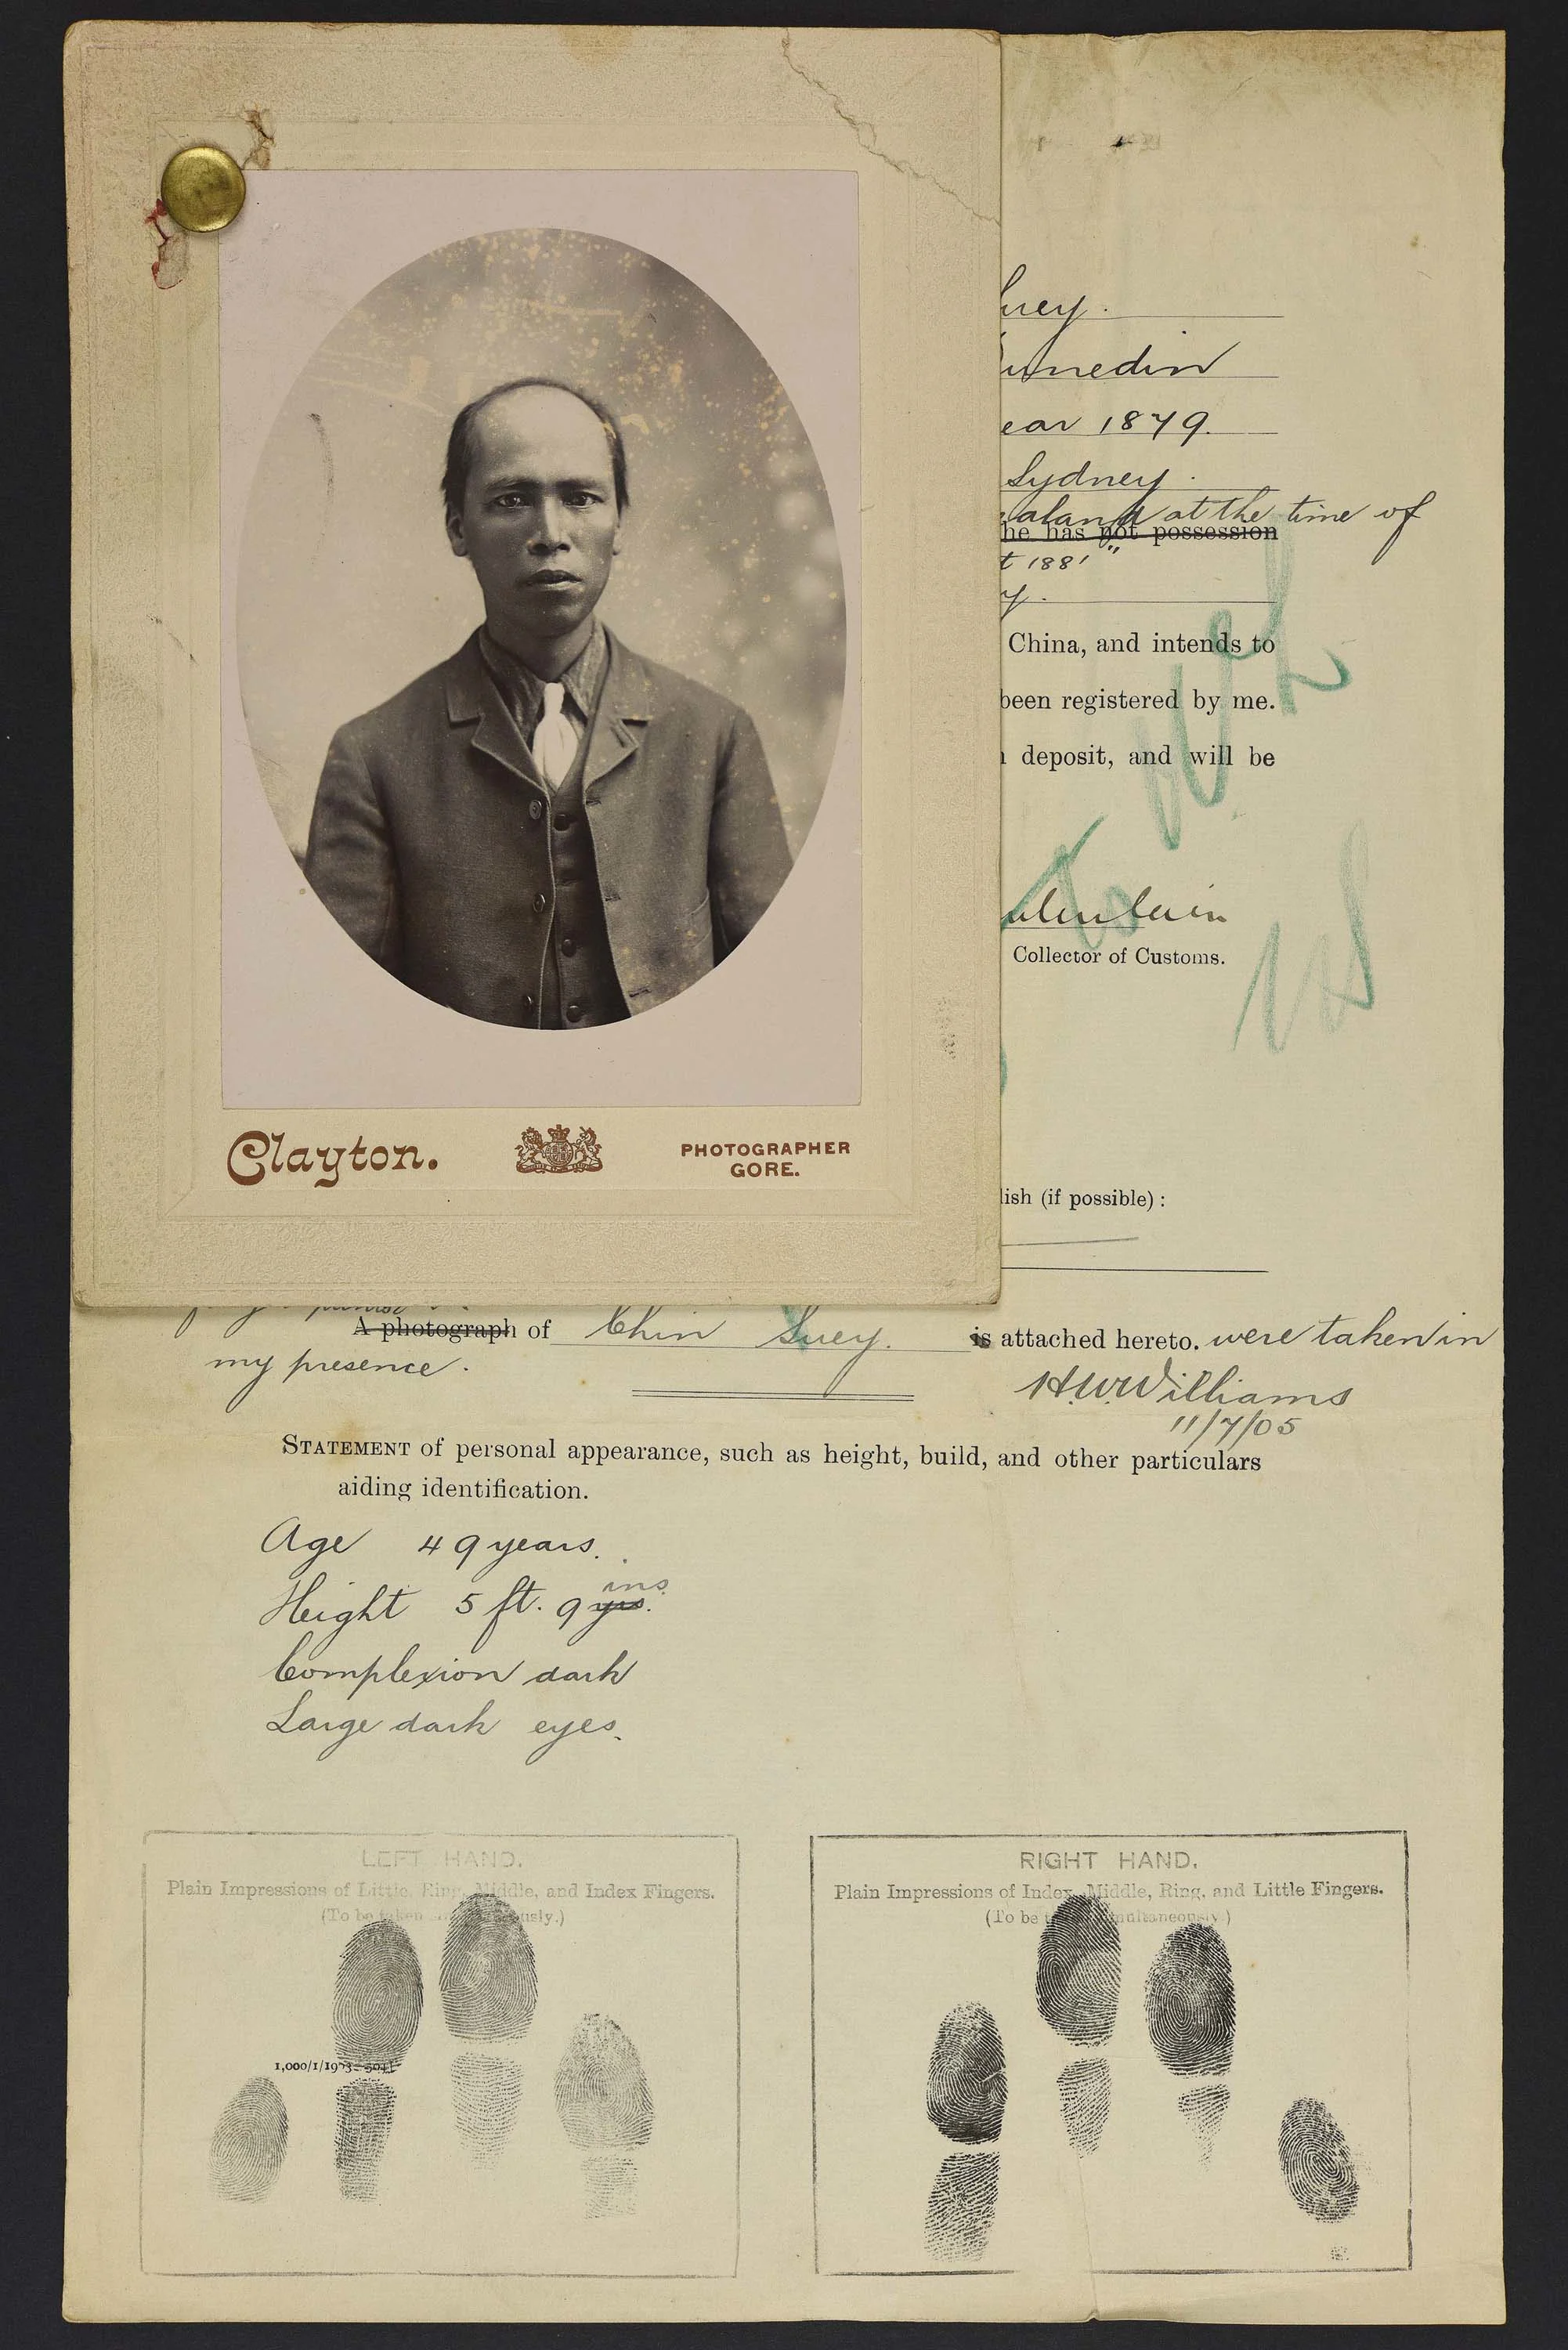 Clayton.
PHOTOGRAPHER
GORE.
uey.
unedin
ear 1879.
Sydney.
ealand at the time of
he has not possession
t 1881"
y.
China, and intends to
been registered by me.
deposit, and will be
Collector of Customs.
lish (if possible):
A photograph of Chin Suey. is attached hereto. were taken in
my presence.
H.W. Williams
11/7/05
STATEMENT of personal appearance, such as height, build, and other particulars
aiding identification.
Age 49 years.
Height 5 ft. 9 yrs. ins.
Complexion dark
Large dark eyes.
LEFT HAND.
Plain Impressions of Little, Ring, Middle, and Index Fingers.
(To be taken
RIGHT HAND.
Plain Impressions of Index, Middle, Ring, and Little Fingers.
(To be simultaneously.)
1,000/1/1903